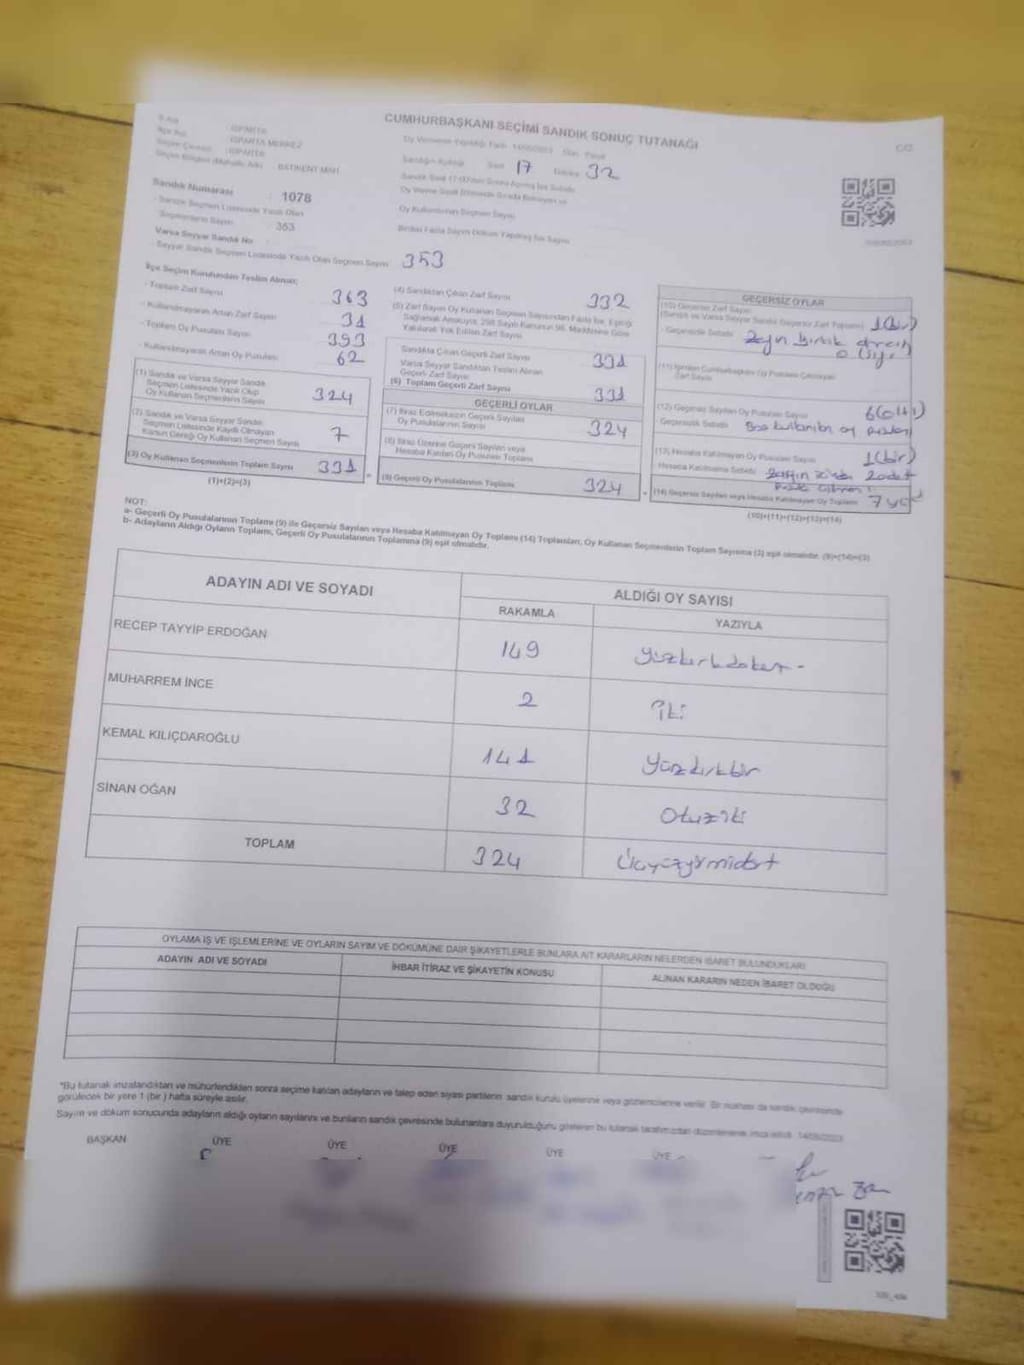 CUMHURBAŞKANI SEÇİMİ SANDIK SONUÇ TUTANAĞI
: ISPARTA
: ISPARTA MERKEZ
: ISPARTA
: BATIKENT MAH.
17 32
Sandık Numarası : 1078
- Sandık Seçmen Listesinde Yazılı Olan
Seçmenlerin Sayısı : 353
Oy Kullanan Seçmen Sayısı
Varsa Seyyar Sandık No
Seyyar Sandık Seçmen Listesinde Yazılı Olan Seçmen Sayısı 353
İlçe Seçim Kurulundan Teslim Alınan;
- Toplam Zarf Sayısı 363
- Kullanılmayarak Artan Zarf Sayısı 31
- Toplam Oy Pusulası Sayısı 393
- Kullanılmayarak Artan Oy Pusulası 62
(1) Sandık ve Varsa Seyyar Sandık
Seçmen Listesinde Yazılı Olup
Oy Kullanan Seçmenlerin Sayısı 324
(2) Sandık ve Varsa Seyyar Sandık
Seçmen Listesinde Kayıtlı Olmayan
Kanun Gereği Oy Kullanan Seçmen Sayısı 7
(3) Oy Kullanan Seçmenlerin Toplam Sayısı 331
(1)+(2)=(3)
(4) Sandıktan Çıkan Zarf Sayısı 332
(5) Zarf Sayısı Oy Kullanan Seçmen Sayısından Fazla İse, Eşitliği
Sağlamak Amacıyla, 298 Sayılı Kanunun 98. Maddesine Göre
Yakılarak Yok Edilen Zarf Sayısı
Sandıkta Çıkan Geçerli Zarf Sayısı 331
Varsa Seyyar Sandıktan Teslim Alınan
Geçerli Zarf Sayısı
(6) Toplam Geçerli Zarf Sayısı 331
GEÇERLİ OYLAR
(7) İtiraz Edilmeksizin Geçerli Sayılan
Oy Pusulalarının Sayısı 324
(8) İtiraz Üzerine Geçerli Sayılan veya
Hesaba Katılan Oy Pusulası Toplamı
(9) Geçerli Oy Pusulalarının Toplamı 324
GEÇERSİZ OYLAR
(10) Geçersiz Zarf Sayısı
(Sandık ve Varsa Seyyar Sandık Geçersiz Zarf Toplamı) 1(bir)
- Geçersizlik Sebebi
Zarf Sayısı
(12) Geçersiz Sayılan Oy Pusulası Sayısı 6(altı)
- Geçersizlik Sebebi Boş kullanılan oy pusulası
(13) Hesaba Katılmayan Oy Pusulası Sayısı 1(bir)
Hesaba Katılmama Sebebi
(14) Geçersiz Sayılan veya Hesaba Katılmayan Oy Toplamı 7 yedi
(10)+(11)+(12)+(13)=(14)
NOT:
a- Geçerli Oy Pusulalarının Toplamı (9) ile Geçersiz Sayılan veya Hesaba Katılmayan Oy Toplamı (14) Toplamları, Oy Kullanan Seçmenlerin Toplam Sayısına (3) eşit olmalıdır. (9)+(14)=(3)
b- Adayların Aldığı Oyların Toplamı, Geçerli Oy Pusulalarının Toplamına (9) eşit olmalıdır.
ADAYIN ADI VE SOYADI ALDIĞI OY SAYISI
RAKAMLA YAZIYLA
RECEP TAYYİP ERDOĞAN 149 yüzkırkdokuz -
MUHARREM İNCE 2 iki
KEMAL KILIÇDAROĞLU 141 yüzkırkbir
SİNAN OĞAN 32 Otuziki
TOPLAM 324 Üçyüzyirmidört
OYLAMA İŞ VE İŞLEMLERİNE VE OYLARIN SAYIM VE DÖKÜMÜNE DAİR ŞİKAYETLERLE BUNLARA AİT KARARLARIN NELERDEN İBARET BULUNDUKLARI
ADAYIN ADI VE SOYADI İHBAR İTİRAZ VE ŞİKAYETİN KONUSU ALINAN KARARIN NEDEN İBARET OLDUĞU
*Bu tutanak imzalandıktan ve mühürlendikten sonra seçime katılan adayların ve talep eden siyasi partilerin sandık kurulu üyelerine veya gözlemcilerine verilir. Bir nüshası da sandık çevresinde
görülecek bir yere 1 (bir ) hafta süreyle asılır.
Sayım ve döküm sonucunda adayların aldığı oyların sayılarını ve bunların sandık çevresinde bulunanlara duyurulduğunu gösteren bu tutanak tarafımızdan düzenlenerek imza edildi. 14/05/2023
BAŞKAN ÜYE ÜYE ÜYE ÜYE ÜYE